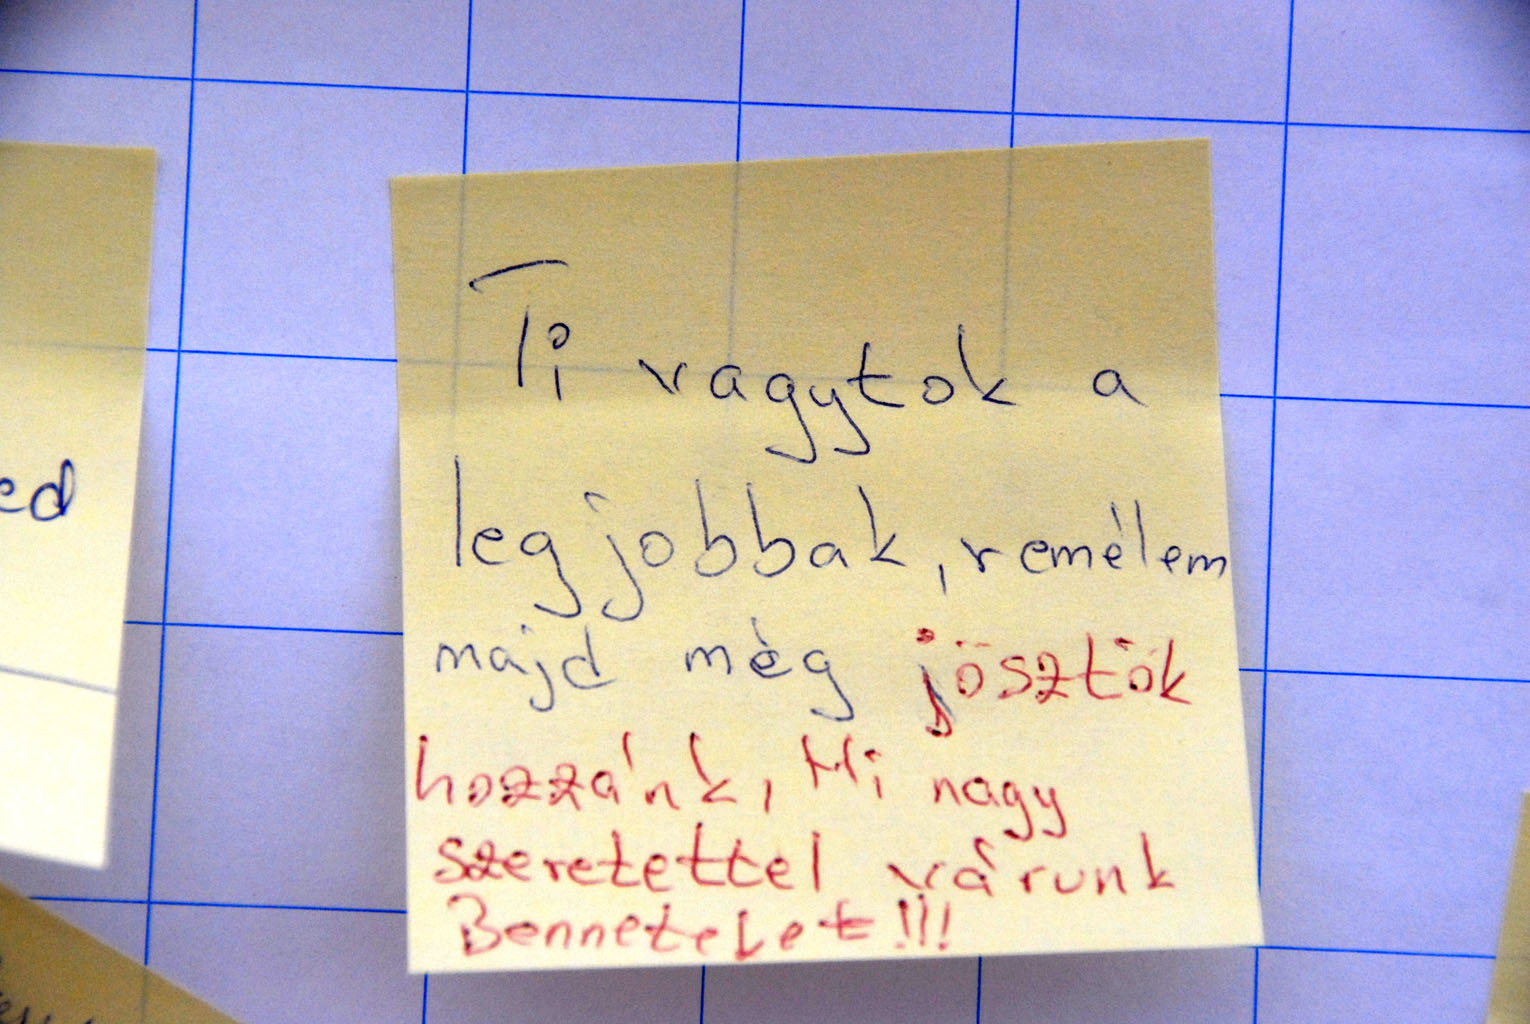 Ti vagytok a
legjobbak, remélem
majd még jösztök
hozzánk, Mi nagy
szeretettel várunk
Bennetelet!!!
ed